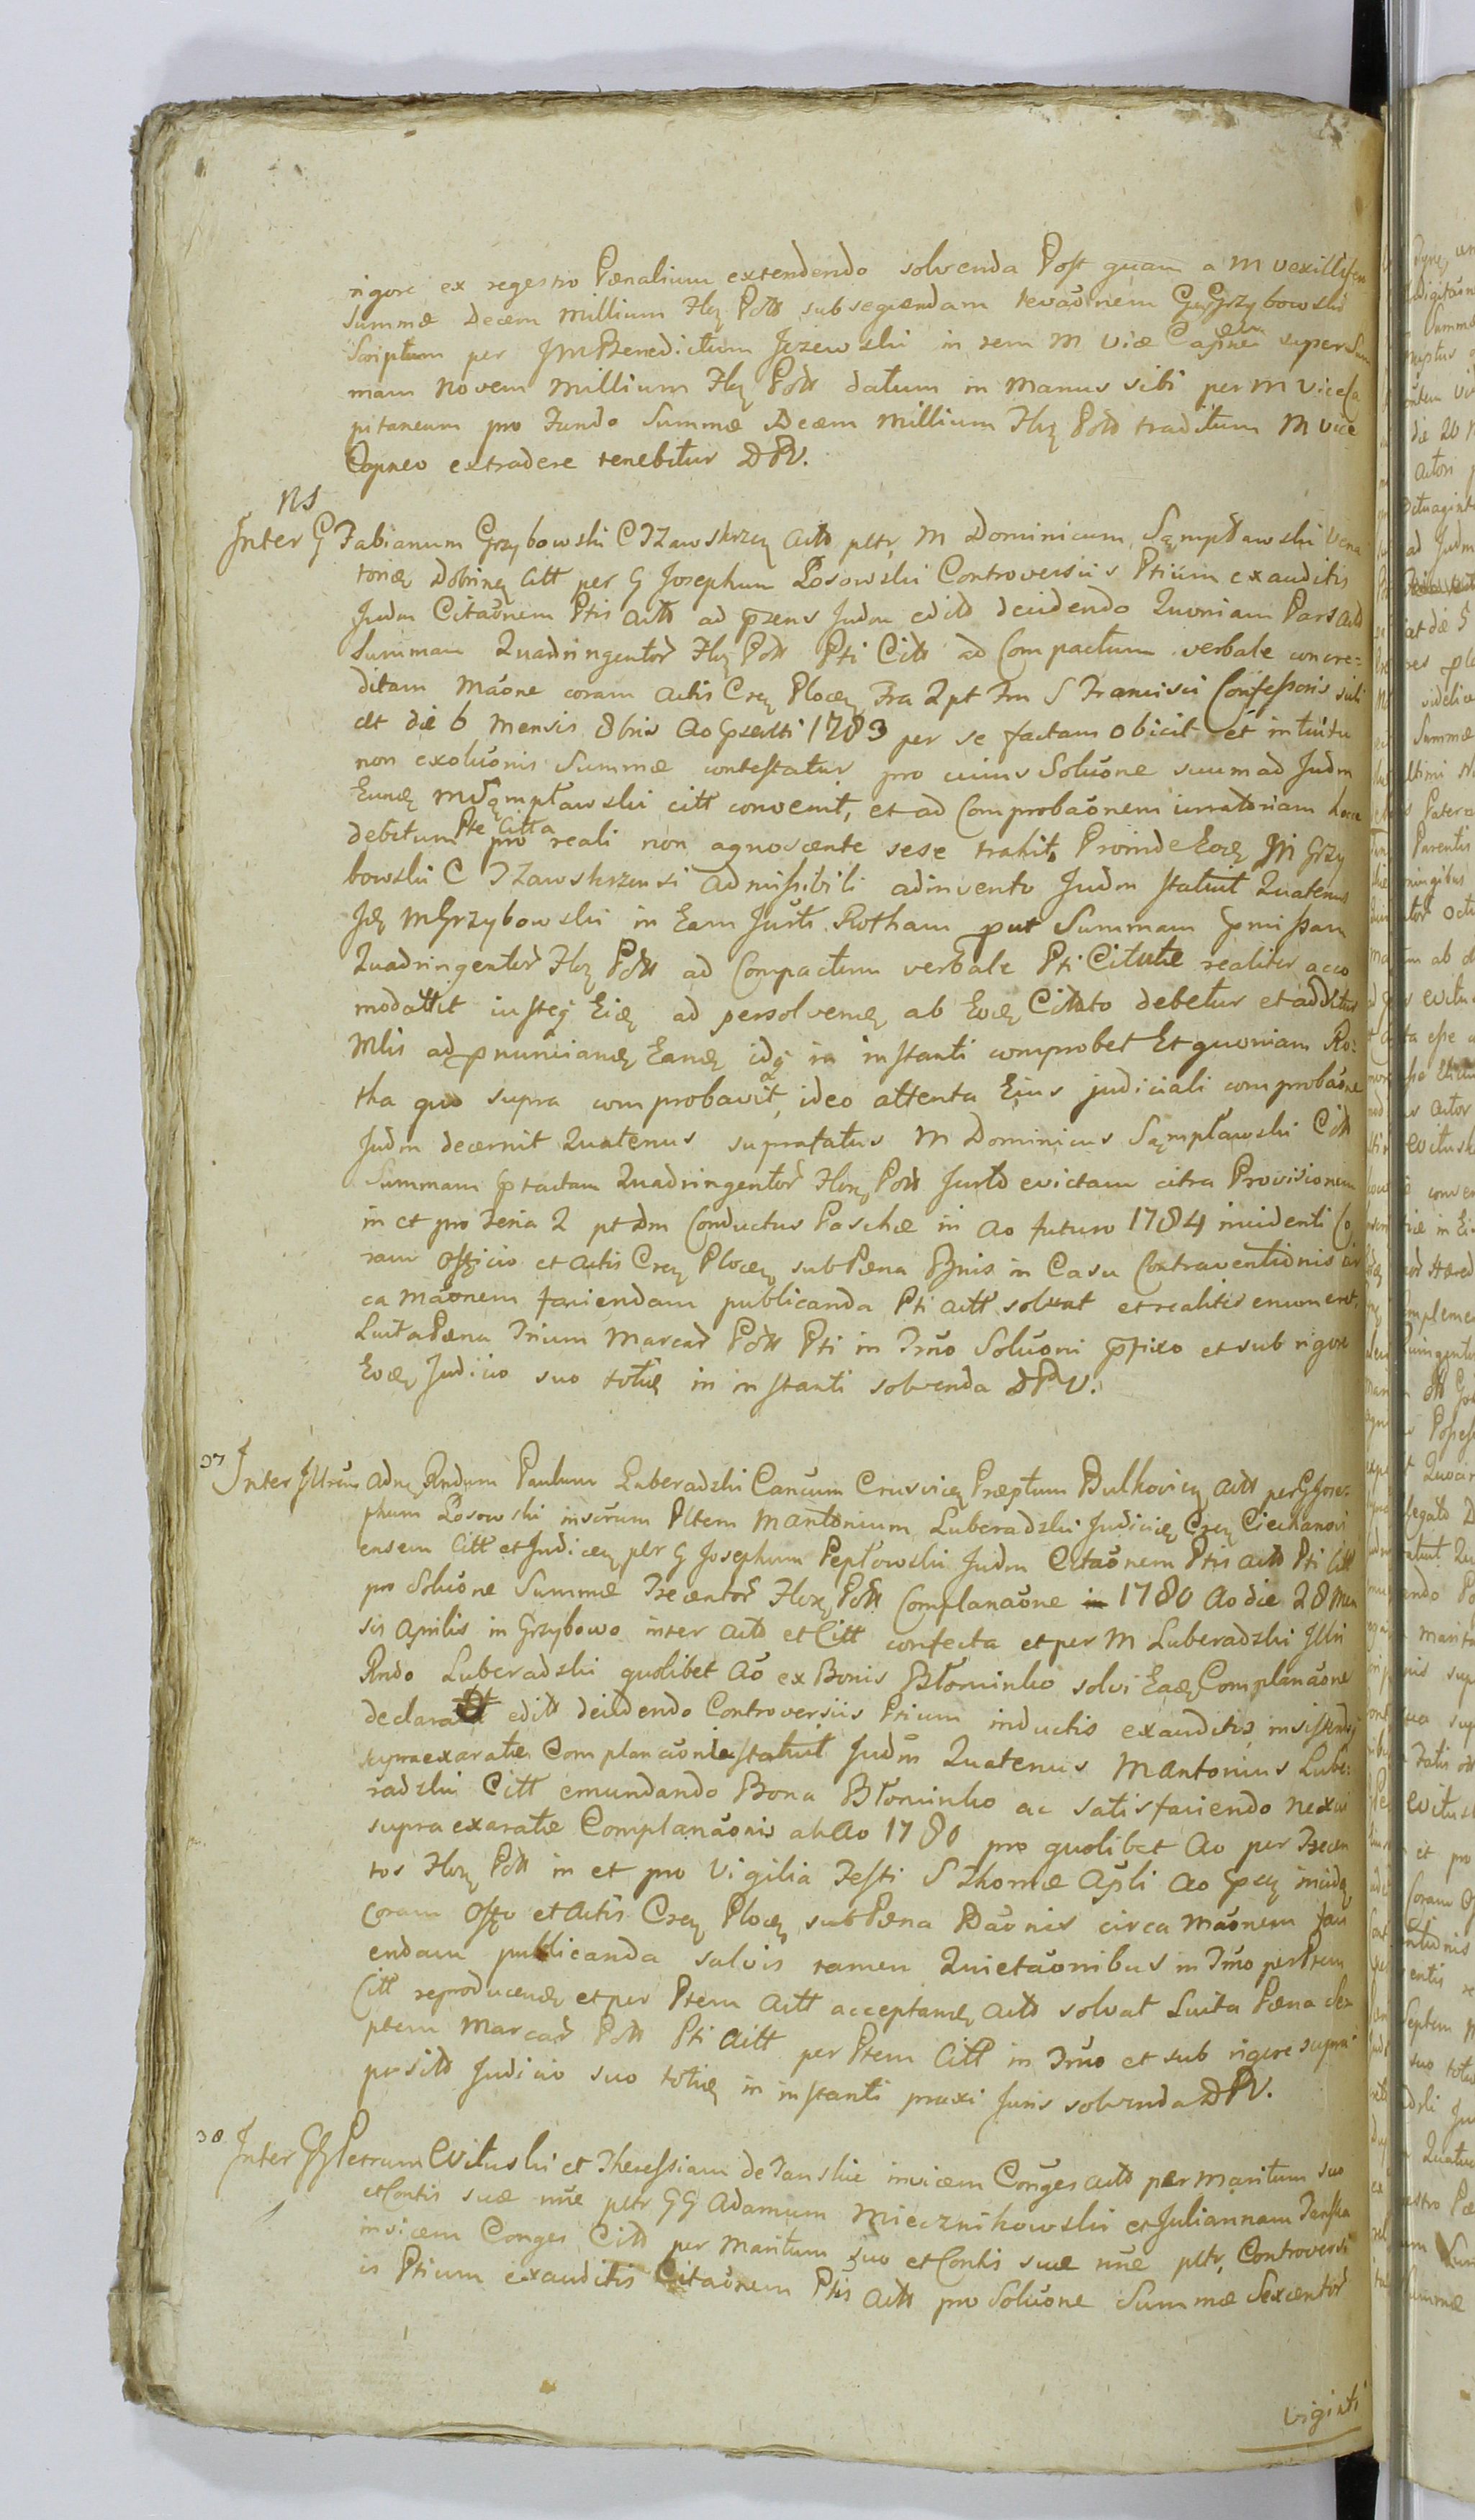 rigore ex regestro Pænalium extendendo solvenda Post quam a M vexillifero
Summæ Decem Millium Flor Poll subsequendam levaōnem G Grzybowski
Scriptum per JM Benedictum Jezewski in rem M vice Capnei super Sum
mam Novem Millium Flor Poll datum in Manus sibi per M Viceca
pitaneum pro Fundo Summæ Decem Millium Flor Poll traditum M vice
Capneo extradere tenebitur DPV.
NS
Inter G Fabianum Grzybowski C Zawskrzen Actt pltr, M Dominicum Sąmpławski Vena
toriæ Dobrinen Citt per G Josephum Rosowski Controversiis Ptium exauditis
Judm Citaōnem Ptis Actt ad præens Judm edito decidendo Quoniam Pars Act
Summam Quadringentor Flor Poll Pti Citt ad Compactum verbale concre=
ditam Maōne coram actis Cren Plocen Fra 2 pt Fm S Francisci Confessoris scili
cet die 6 Mensis 8bris Ao præsenti 1783 per se factam obicit et intuitu
non exoluōnis Summæ contestatur pro cuius Soluōne suum ad Judm
Eundem M Sąmpławski citt convenit, et ad Comprobaōnem iuratoriam hocce
debitum Pte Citta pro reali non agnoscente sese trahit, Proinde Eodem M Grzy
bowski C Zawskrzensi admissibili adinvento Judm statuit Quatenus
Idem M Grzybowski in Eam Jurti Rotham prout Summam præmissam
Quadringentor Flor Poll ad Compactum verbale Pti Citatæ realiter acco
modavit iusteque Eidem ad persolvendam ab Eodem Citato debetur et additur
Mlis ad pronunciandam Eandem idque in instanti comprobet Et quoniam Ro=
tha quo supra comprobavit, ideo attenta Eius judiciali comprobaōne
Judm decernit Quatenus supratatus M Dominicus Sąmpławski Citt
Summam prætactam Quadringentor Flor Poll Jurto evictam citra Provisionem
in et pro Feria 2 pt Dm Conductus Paschæ in Ao futuro 1784 incidenti Co
ram Officio et Actis Cren Plocen sub Pæna Bnis in Casu Contraventionis cir
ca Maōnem faciendam publicanda Pti Actt solvat et realiter enumeret,
Luita Pæna Trium Marcar Poll Pti in Trno Soluōni præfixo et sub rigore
Eodem Judicio suo toties in instanti solvenda DPV.
37 Inter Illrum Adm Rndum Paulum Luberadzki Canoum Crusvicen Præptum Bulkovien Actt per G Jose=
phum Rosowski inserum Pltem M Antonium Luberadzki Judicen Cren Ciechanovi
ensem Citt et Judicem pltr G Josephum Pepłowski Judm Citaōnem Ptis Actt Pti Citt
pro Soluōne Summæ Trecentor Flor Poll Complanaōne in 1780 Ao die 28 Men
sis Aprilis in Grzybowo inter Actt et Citt confecta et per M Luberadzki Illri
Rndo Luberadzki quolibet Ao ex Bonis Błominko solvi Eadem Complanaōne
declarata edito decidendo Controversiis Ptium inductis exauditis, insistendo
supraexaratæ Complanaōni statuit Judm Quatenus M Antonius Lube=
radzki Citt emundando Bona Błominko ac satisfaciendo nexui
supra exaratæ Complanaōnis ab Ao 1780 pro quolibet Ao per Trecen
tos Flor Poll in et pro Vigilia Festi S Thomæ Apli Ao præsen inciden
Coram Offo et Actis Cren Plocen sub Pæna Baōnis circa Maōnem faci
endam publicanda salvis tamen Quietaōnibus in Trno per Ptem
Citt reproducendis et per Ptem Actt acceptandis Actt solvat Luita Pæna Se
ptem Marcar Poll Pti Actt per Ptem Citt in Trno et sub rigore supra
posito Judicio suo toties in instanti praxi Juris solvenda DPV.
38 Inter GG Petrum Evituski et Theressiam de Tanskie invicem Conges Actt per Maritum suo
et Contis suæ nne pltr GG Adamum Miecznikowski et Juliannam Tanska
invicem Conges Citt per Maritum suo et Contis suæ nne pltr, Controversi
is Ptium exauditis Citaōnem Ptis Actt pro Soluōne Summæ Sexcentor
viginti